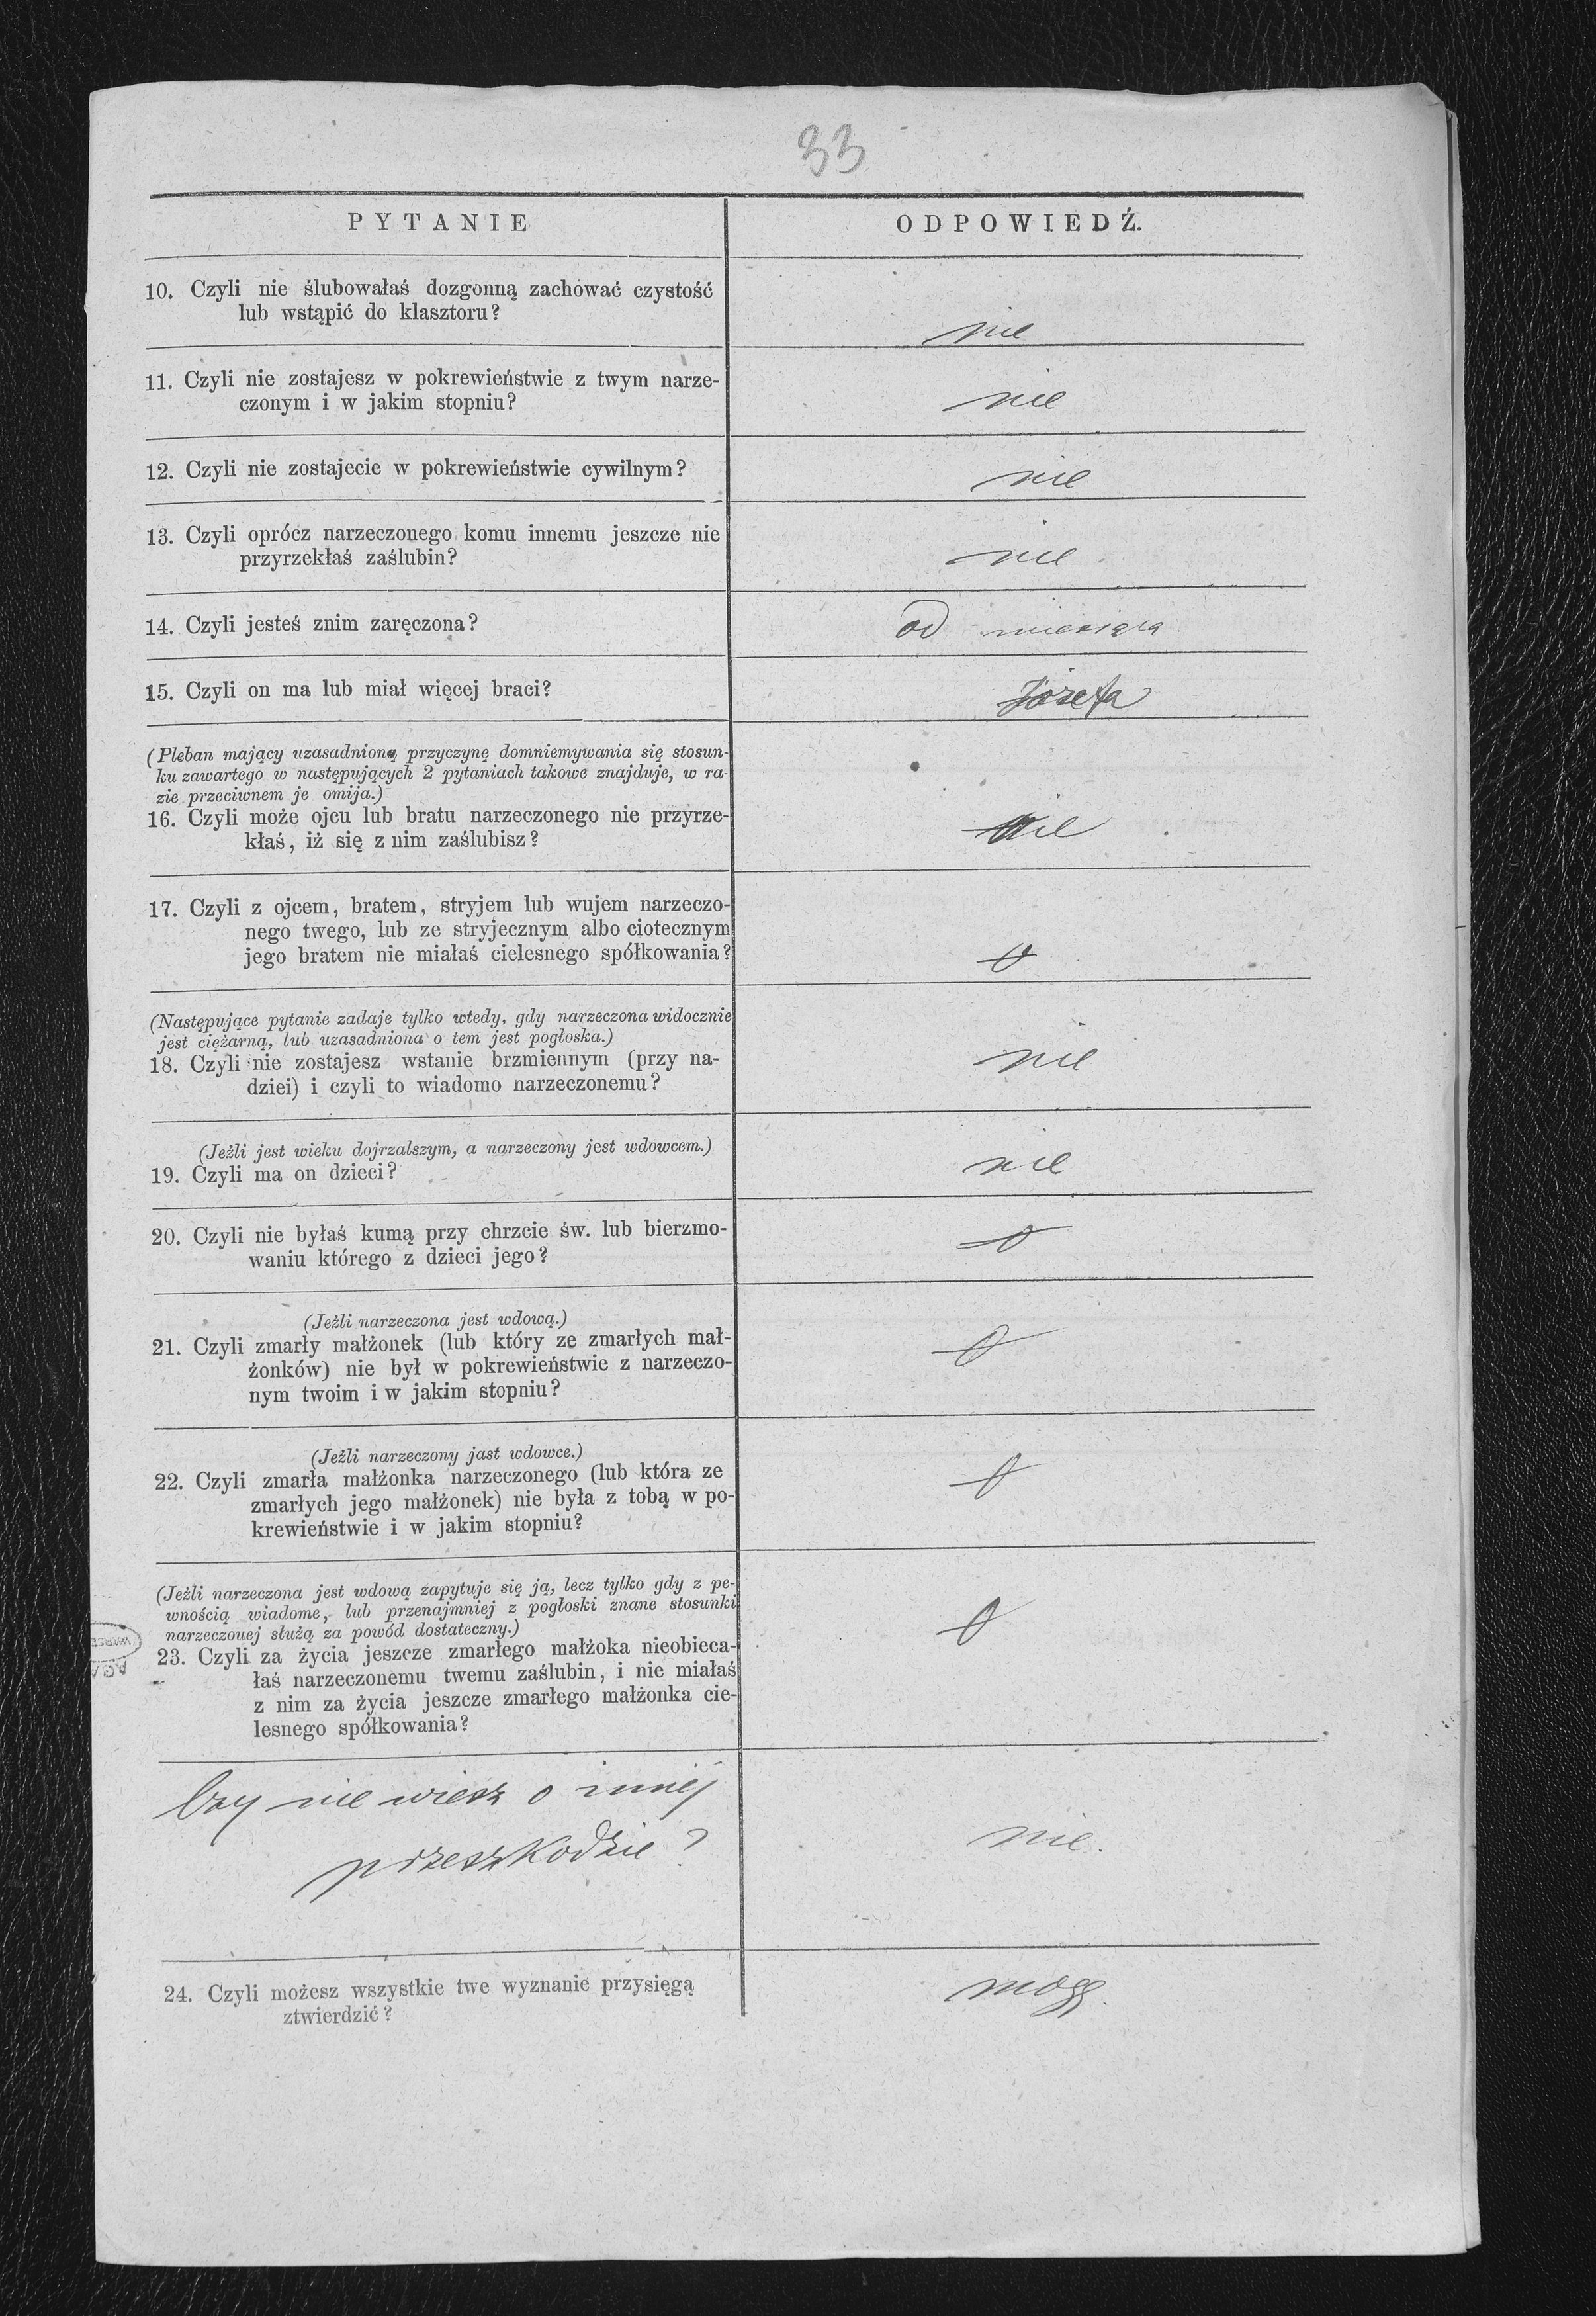 33
PYTANIE
ODPOWIEDŹ.
10. Czyli nie ślubowałaś dozgonną zachować czystość
lub wstąpić do klasztoru?
nie
11. Czyli nie zostajesz w pokrewieństwie z twym narze-
czonym i w jakim stopniu?
nie
12. Czyli nie zostajecie w pokrewieństwie cywilnym?
nie
13. Czyli oprócz narzeczonego komu innemu jeszcze nie
przyrzekłaś zaślubin?
nie
14. Czyli jesteś znim zaręczona?
od miesiąca
15. Czyli on ma lub miał więcej braci?
Józefa
(Pleban mający uzasadnioną przyczynę domniemywania się stosun-
ku zawartego w następujących 2 pytaniach takowe znajduje, w ra-
zie przeciwnem je omija.)
16. Czyli może ojcu lub bratu narzeczonego nie przyrze-
kłaś, iż się z nim zaślubisz?
nie
17. Czyli z ojcem, bratem, stryjem lub wujem narzeczo-
nego twego, lub ze stryjecznym albo ciotecznym
jego bratem nie miałaś cielesnego spółkowania?
0
(Następujące pytanie zadaje tylko wtedy, gdy narzeczona widocznie
jest ciężarną, lub uzasadniona o tem jest pogłoska.)
18. Czyli nie zostajesz wstanie brzmiennym (przy na-
dziei) i czyli to wiadomo narzeczonemu?
nie
(Jeżli jest wieku dojrzalszym, a narzeczony jest wdowcem.)
19. Czyli ma on dzieci?
nie
20. Czyli nie byłaś kumą przy chrzcie św. lub bierzmo-
waniu którego z dzieci jego?
0
(Jeżli narzeczona jest wdową.)
21. Czyli zmarły małżonek (lub który ze zmarłych mał-
żonków) nie był w pokrewieństwie z narzeczo-
nym twoim i w jakim stopniu?
0
(Jeżli narzeczony jast wdowce.)
22. Czyli zmarła małżonka narzeczonego (lub która ze
zmarłych jego małżonek) nie była z tobą w po-
krewieństwie i w jakim stopniu?
0
(Jeżli narzeczona jest wdową zapytuje się ją, lecz tylko gdy z pe-
wnością wiadome, lub przenajmniej z pogłoski znane stosunki
narzeczouej służą za powód dostateczny.)
23. Czyli za życia jeszcze zmarłego małżoka nieobieca-
łaś narzeczonemu twemu zaślubin, i nie miałaś
z nim za życia jeszcze zmarłego małżonka cie-
lesnego spółkowania?
0
Czy nie wiesz o innej
przeszkodzie?
nie.
24. Czyli możesz wszystkie twe wyznanie przysięgą
ztwierdzić?
mogę.